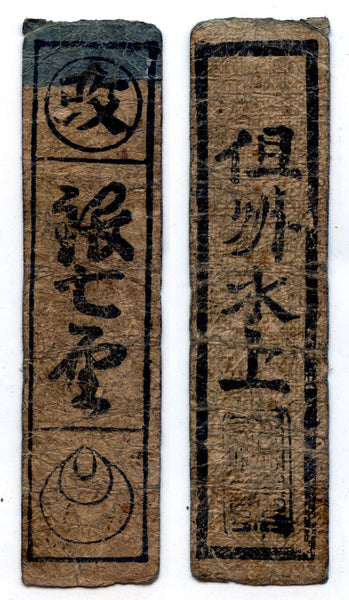 改
銀七分
但州水上